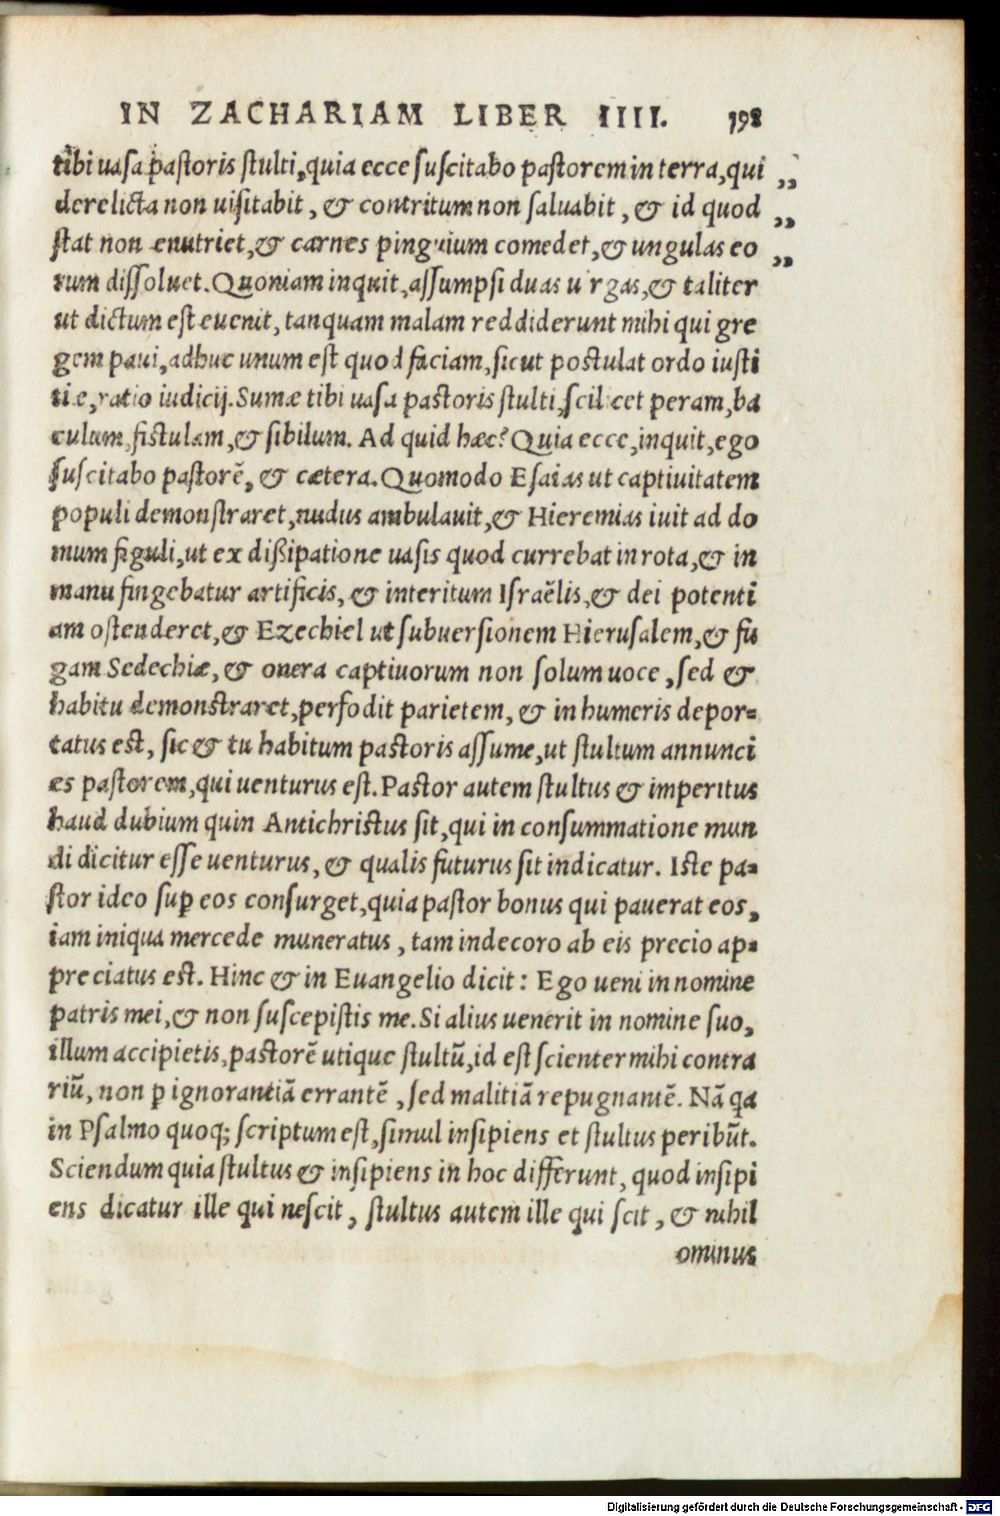 IN ZACHARIAM LIBER IIII. 198
tibi uasa pastoris stulti, quia ecce suscitabo pastorem in terra, qui ,,
derelicta non uisitabit, & contritum non saluabit, & id quod ,,
stat non enutriet, & carnes pinguium comedet, & ungulas eo ,,
rum dissoluet. Quoniam inquit, assumpsi duas u rgas, & taliter
ut dictum est euenit, tanquam malam reddiderunt mihi qui gre
gem paui, adhuc unum est quod faciam, sicut postulat ordo iusti
tie, ratio iudicij. Sumæ tibi uasa pastoris stulti, scil cet peram, ba
culum, fistulam, & sibilum. Ad quid hæc? Quia ecce, inquit, ego
suscitabo pastorē, & cætera. Quomodo Esaias ut captiuitatem
populi demonstraret, nudus ambulauit, & Hieremias iuit ad do
mum figuli, ut ex dißipatione uasis quod currebat in rota, & in
manu fingebatur artificis, & interitum Israëlis, & dei potenti
am ostenderet, & Ezechiel ut subuersionem Hierusalem, & fu
gam Sedechiæ, & onera captiuorum non solum uoce, sed &
habitu demonstraret, perfodit parietem, & in humeris depor=
tatus est, sic & tu habitum pastoris assume, ut stultum annunci
es pastorem, qui uenturus est. Pastor autem stultus & imperitus
haud dubium quin Antichristus sit, qui in consummatione mun
di dicitur esse uenturus, & qualis futurus sit indicatur. Iste pa=
stor ideo suꝑ eos consurget, quia pastor bonus qui pauerat eos,
iam iniqua mercede muneratus, tam indecoro ab eis precio ap=
preciatus est. Hinc & in Euangelio dicit: Ego ueni in nomine
patris mei, & non suscepistis me. Si alius uenerit in nomine suo,
illum accipietis, pastorē utique stultū, id est scienter mihi contra
riū, non ꝑ ignorantiā errantē, sed malitiā repugnantē. Nā qa
in Psalmo quoq; scriptum est, simul insipiens et stultus peribūt.
Sciendum quia stultus & insipiens in hoc differunt, quod insipi
ens dicatur ille qui nescit, stultus autem ille qui scit, & nihil
ominus
Digitalisierung gefördert durch die Deutsche Forschungsgemeinschaft - DFG